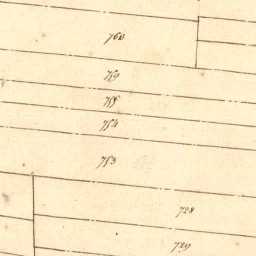 760
759
755
754
753
728
729